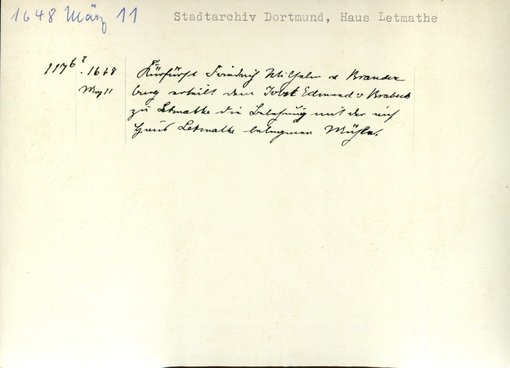 1648 März 11 Stadtarchiv Dortmund, Haus Letmathe
1176² . 1648 Kurfürst Friedrich Wilhelm v Branden
März 11 burg erteilt dem Jobst Edmund v Brabeck
zu Letmathe die Belehnung mit der
Haus Letmathe belegenen Mühle.